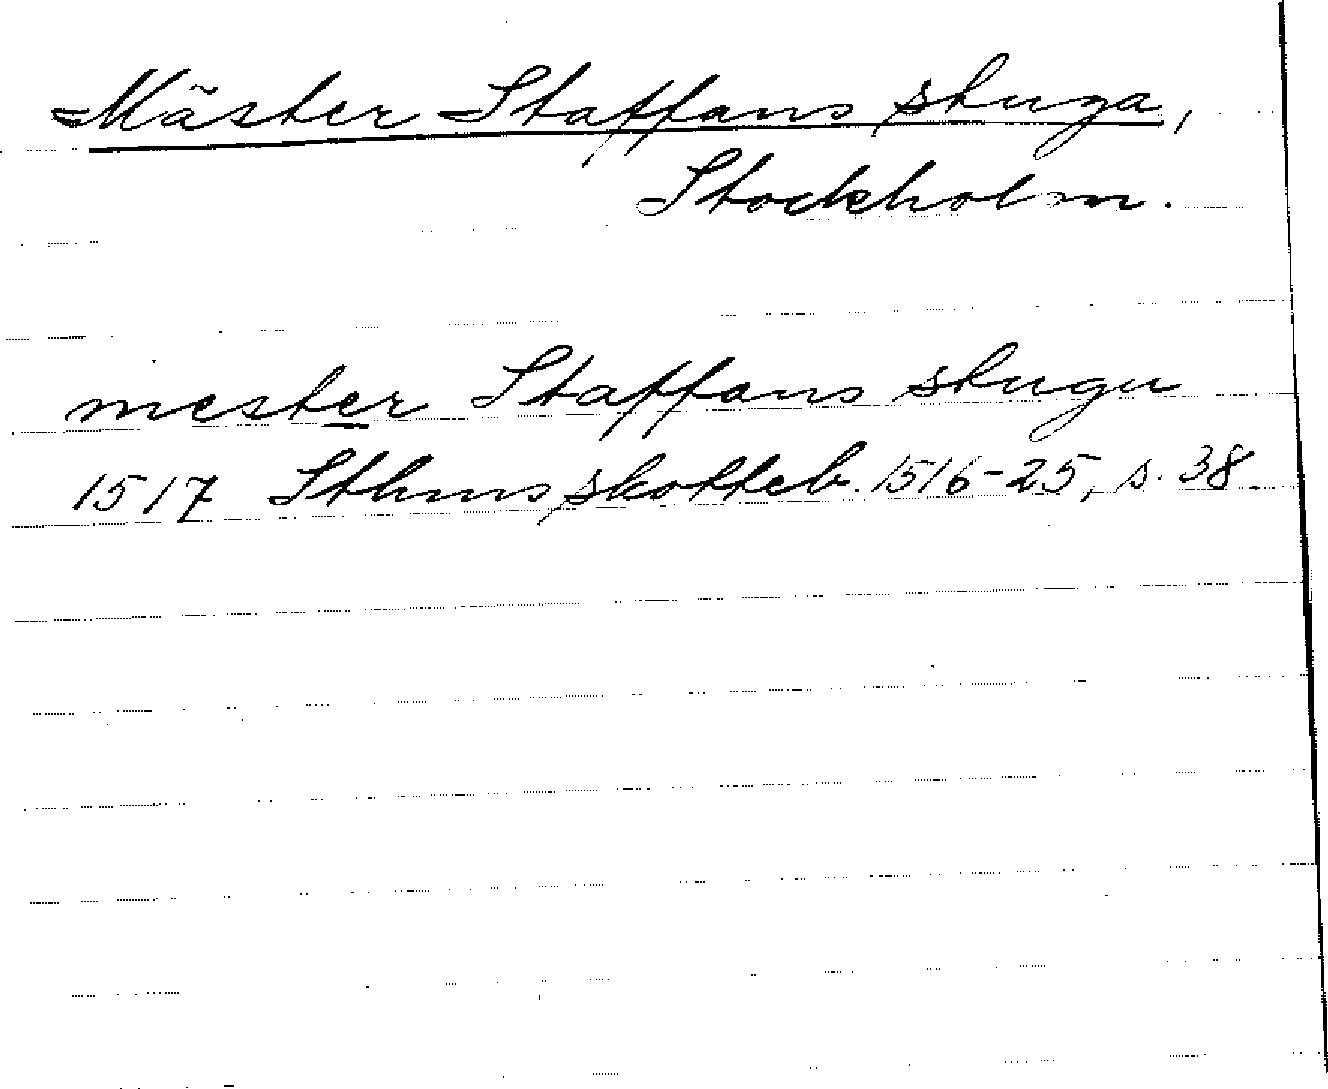 Mäster Staffans stuga,
Stockholm.
mester Staffans stugu
1517 Sthms skotteb. 1516-25, s. 38